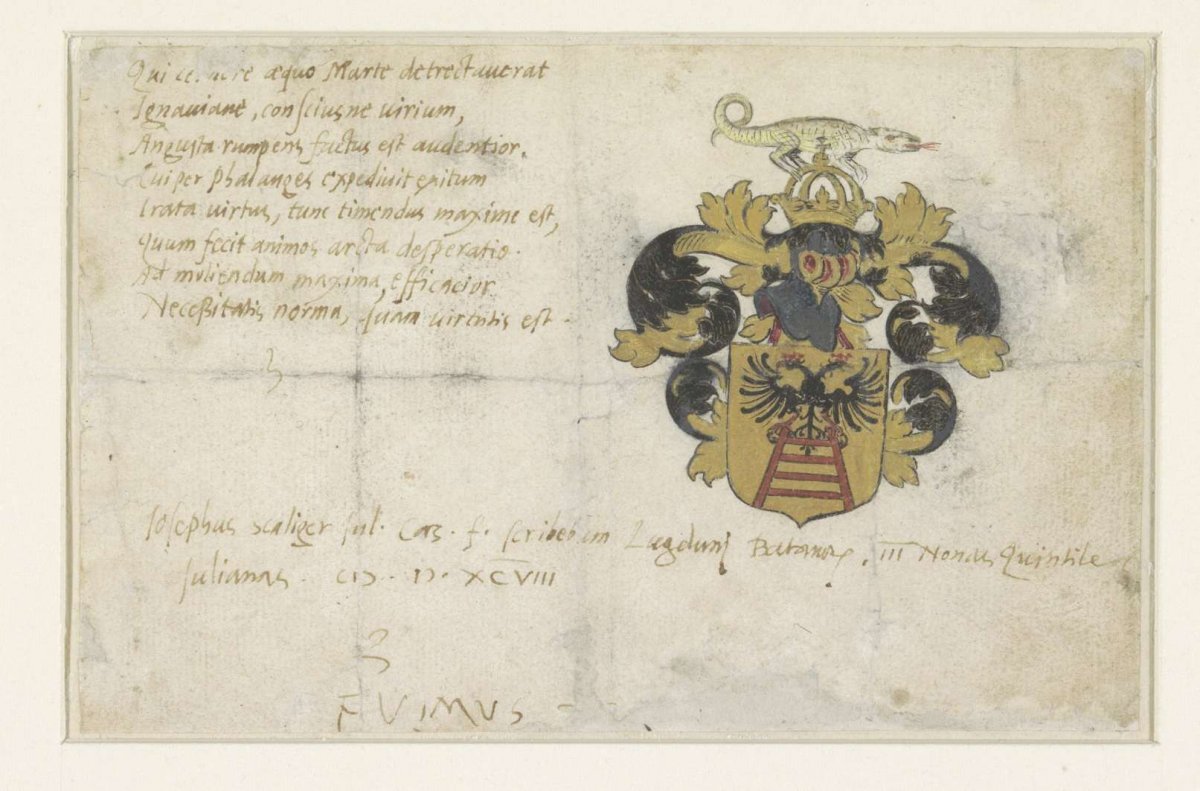 Qui aequo Marte detrectauerat
Ignauiane, consciusne virium,
Angusta rumpens factus est audentior.
Cui per phalanges expediuit exitum
Irata virtus, tunc timendus maxime est,
Quum fecit animos arcta desperatio.
Ad moliendum maxima, efficacior
Necessitatis norma, quam virtutis est.
Iosephus Scaliger Iul. Caes. f. scribebam Lugduni Batauor. III Nonas Quintileis
Iulianas. CIƆ. IƆ. XCVIII
FVIMUS